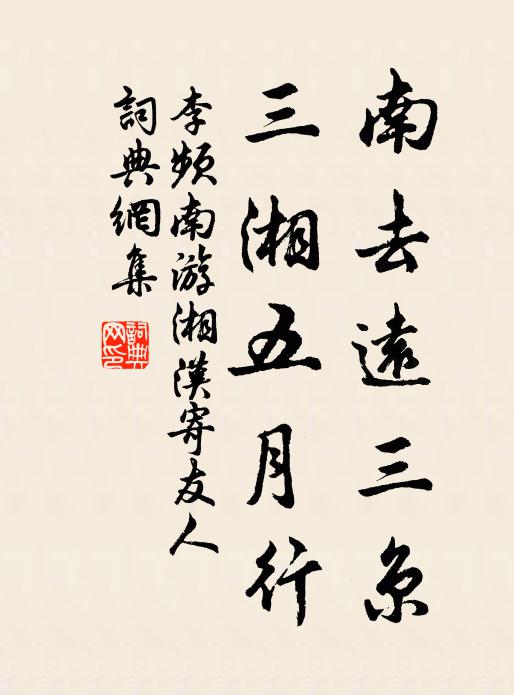 南去遠三京
三湘五月行
李頻南游湘漢寄友人
詞典網集
詞典
网印